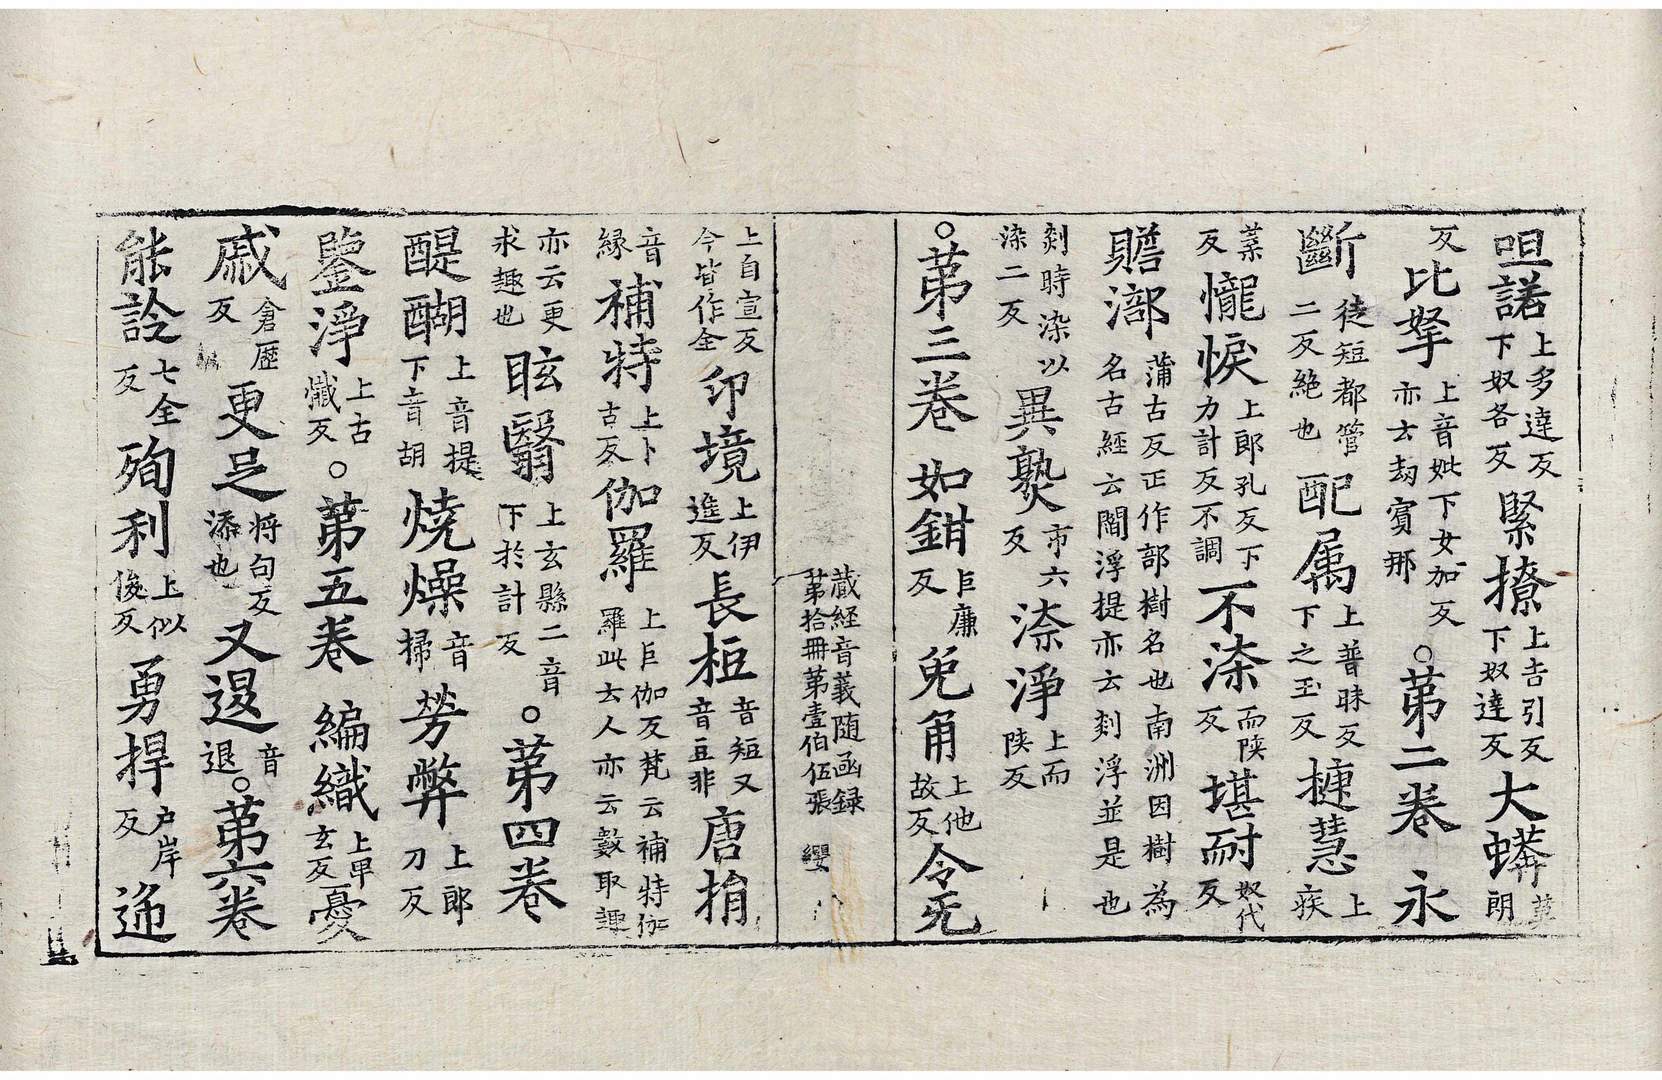 呾諾上多達反下奴各反緊㨫上吉引反下奴達反大蟒莫朗
反比拏上音妣下女加反亦云刼賓那○苐二卷永
斷徒短都管二反絕也配属上普昧反下之玉反揵慧上疾
葉反㦕悷上郎孔反下力計反不調不染而陜反堪耐奴代反
贍㵽蒲古反正作部樹名也南洲因樹為名古經云閻浮提亦云剡浮並是也
剡時染以染二反異熟市六反染淨上而陜反
○苐三卷如鉗巨廉反兔角上他故反令旡
蔵経音義随函録
苐拾冊苐壹伯伍張 纓
上自宣反今皆作全印境上伊進反長桓音短又音豆非唐捐
音縁補特上卜古反伽羅上巨伽反梵云補特伽羅此云人亦云數取趣
亦云更求趣也眩瞖上玄縣二音下於計反○苐四卷
醍醐上音提下音胡燒燥音掃勞弊上郎刀反
鑒淨上古懺反○苐五卷編織上卑玄反憂
慼倉歷反更足将句反添也又退音退○苐六卷
能詮七全反殉利上似俊反勇捍户岸反逓